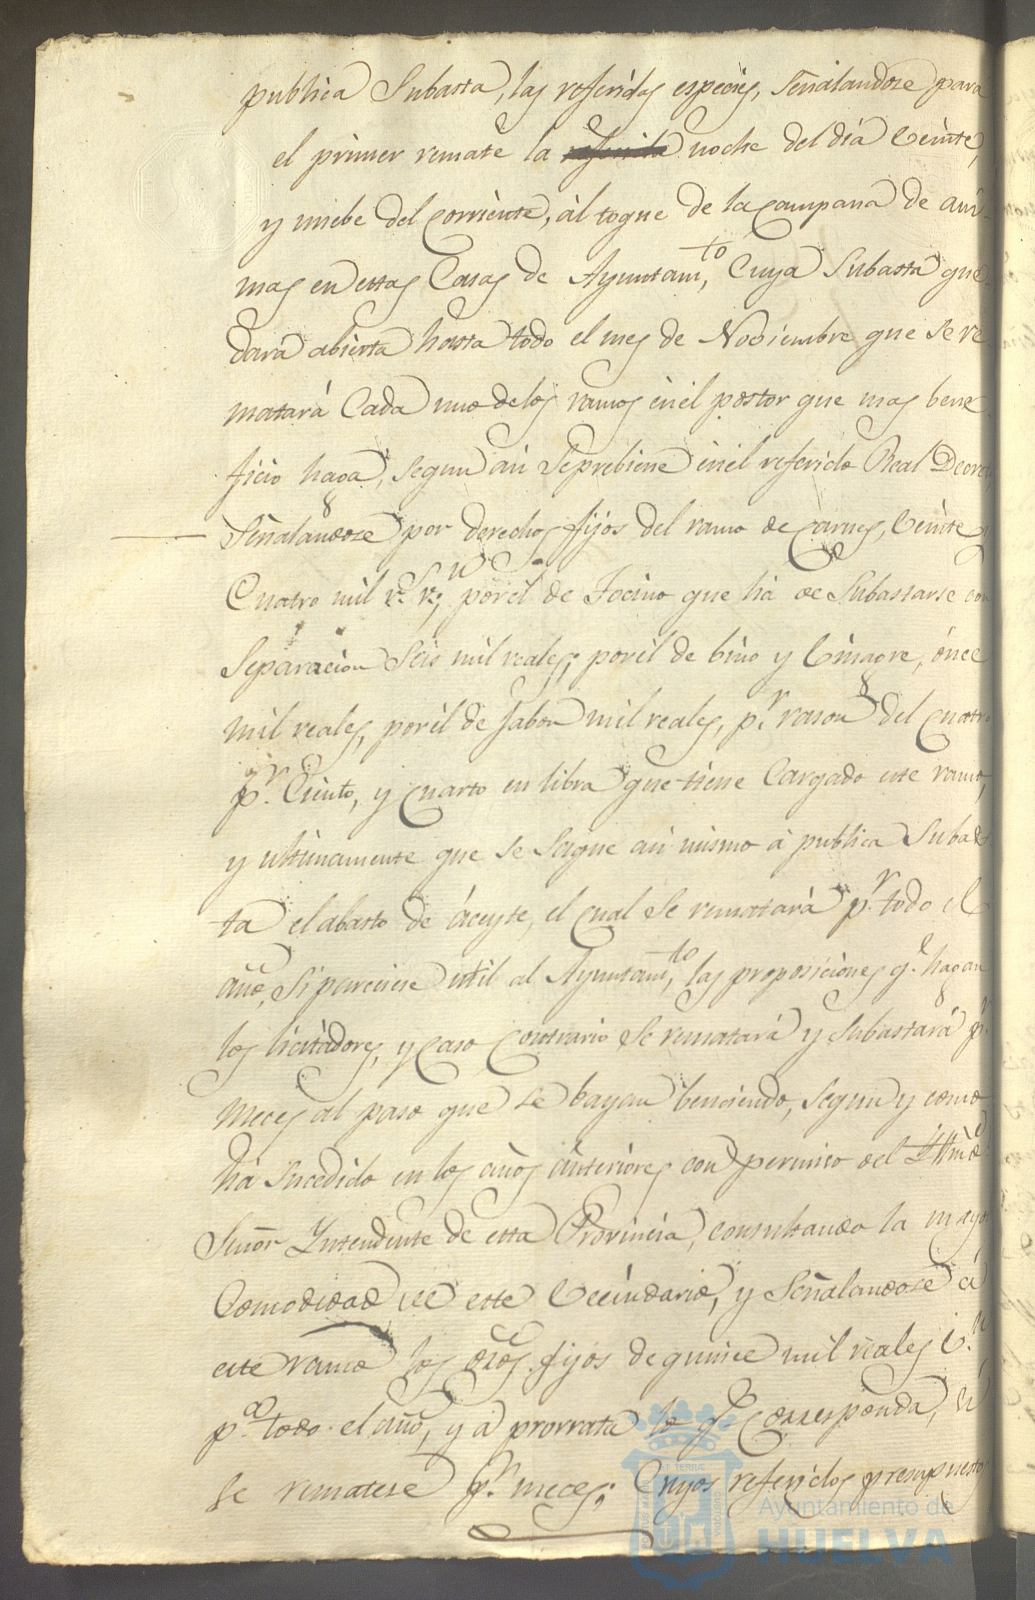 publica Subasta, las referidas especies, Señalandose para
el primer remate la referida noche del dia veinte,
y nuebe del corriente, àl toque de la campana de ani-
mas en estas Casas de Ayuntam.to, Cuya Subasta que-
dará abierta hasta todo el mes de Nobiembre que se re
matará Cada uno de los ramos enèl postor que mas bene
ficio haga, segun asi Seprebiene enèl referido Real Decre
Señalandose por derechos fijos del ramo de Carnes, veinte y
Cuatro mil r.s v.n; porèl de Tocino que hà de Subastarse con
Separacion Seis mil reales; porèl de bino y binagre, once
mil reales, porèl de Jabon mil reales, p.r rason del cuatro
p.r Ciento, y cuarto en libra que tiene Cargado este ramo,
y ultimamente que se saque asi mismo à publica Subas
ta el abasto de àceyte, el cual se rematará p.r todo el
año, Si pareciese util al Ayuntam.to, las proposiciones q.e hagan
los licitadores, y Caso Contrario Se rematará y Subastará p.r
meces al paso que se bayan benciendo, segun y como
hà Sucedido en los años ànteriores con permiso del Yllmo
Señor Yntendente de esta Provincia, consultando la mayor
Comodidad de este Vecindario, y Señalandose à
este ramo los dros fijos de quince mil reales v.n
p.a todo el año, y à prorrata lo q.e Corresponda, si
se rematase p.r meces; Cuyos referidos presupuestos
Ayuntamiento de
HUELVA